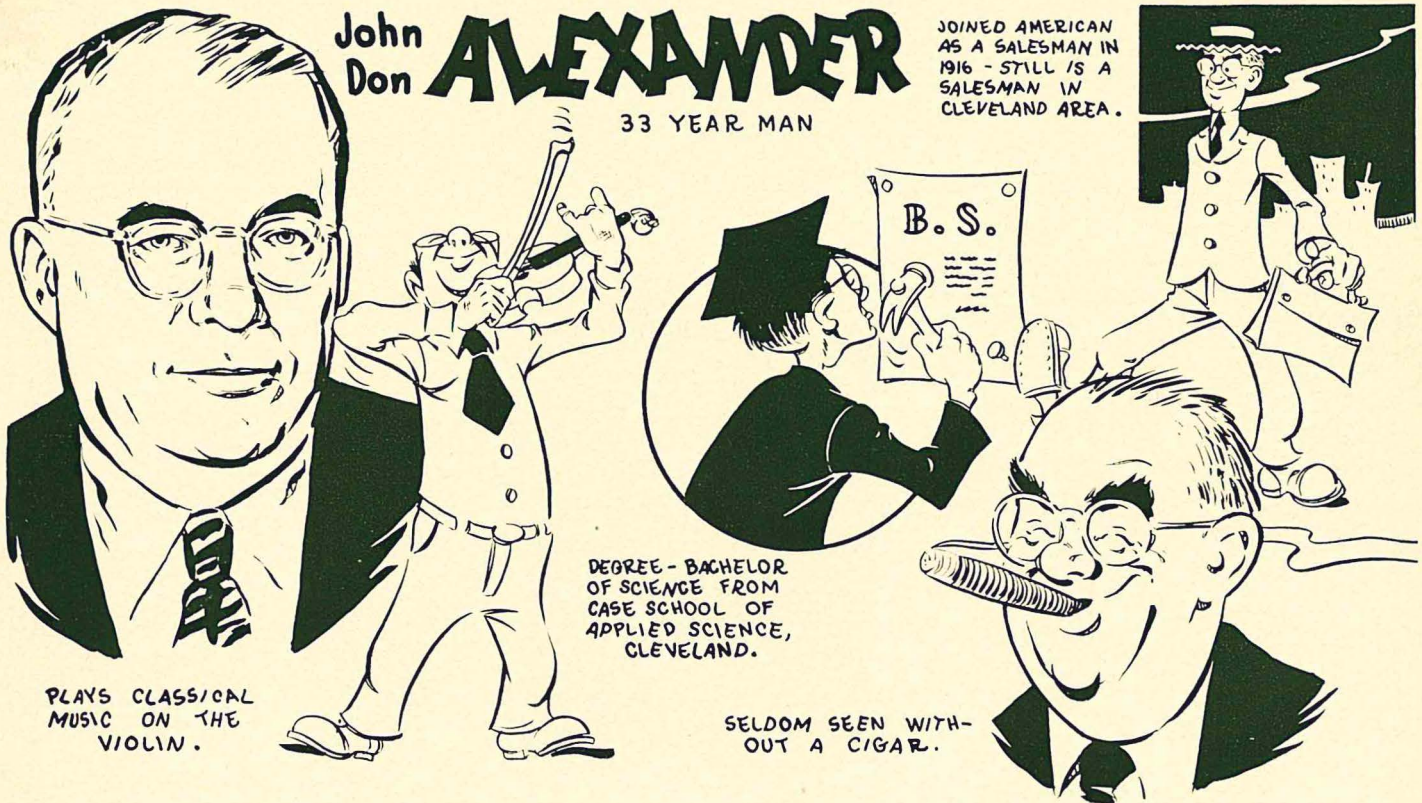 John
Don ALEXANDER
33 YEAR MAN
JOINED AMERICAN
AS A SALESMAN IN
1916 - STILL IS A
SALESMAN IN
CLEVELAND AREA.
B. S.
DEGREE - BACHELOR
OF SCIENCE FROM
CASE SCHOOL OF
APPLIED SCIENCE,
CLEVELAND.
PLAYS CLASSICAL
MUSIC ON THE
VIOLIN.
SELDOM SEEN WITH-
OUT A CIGAR.